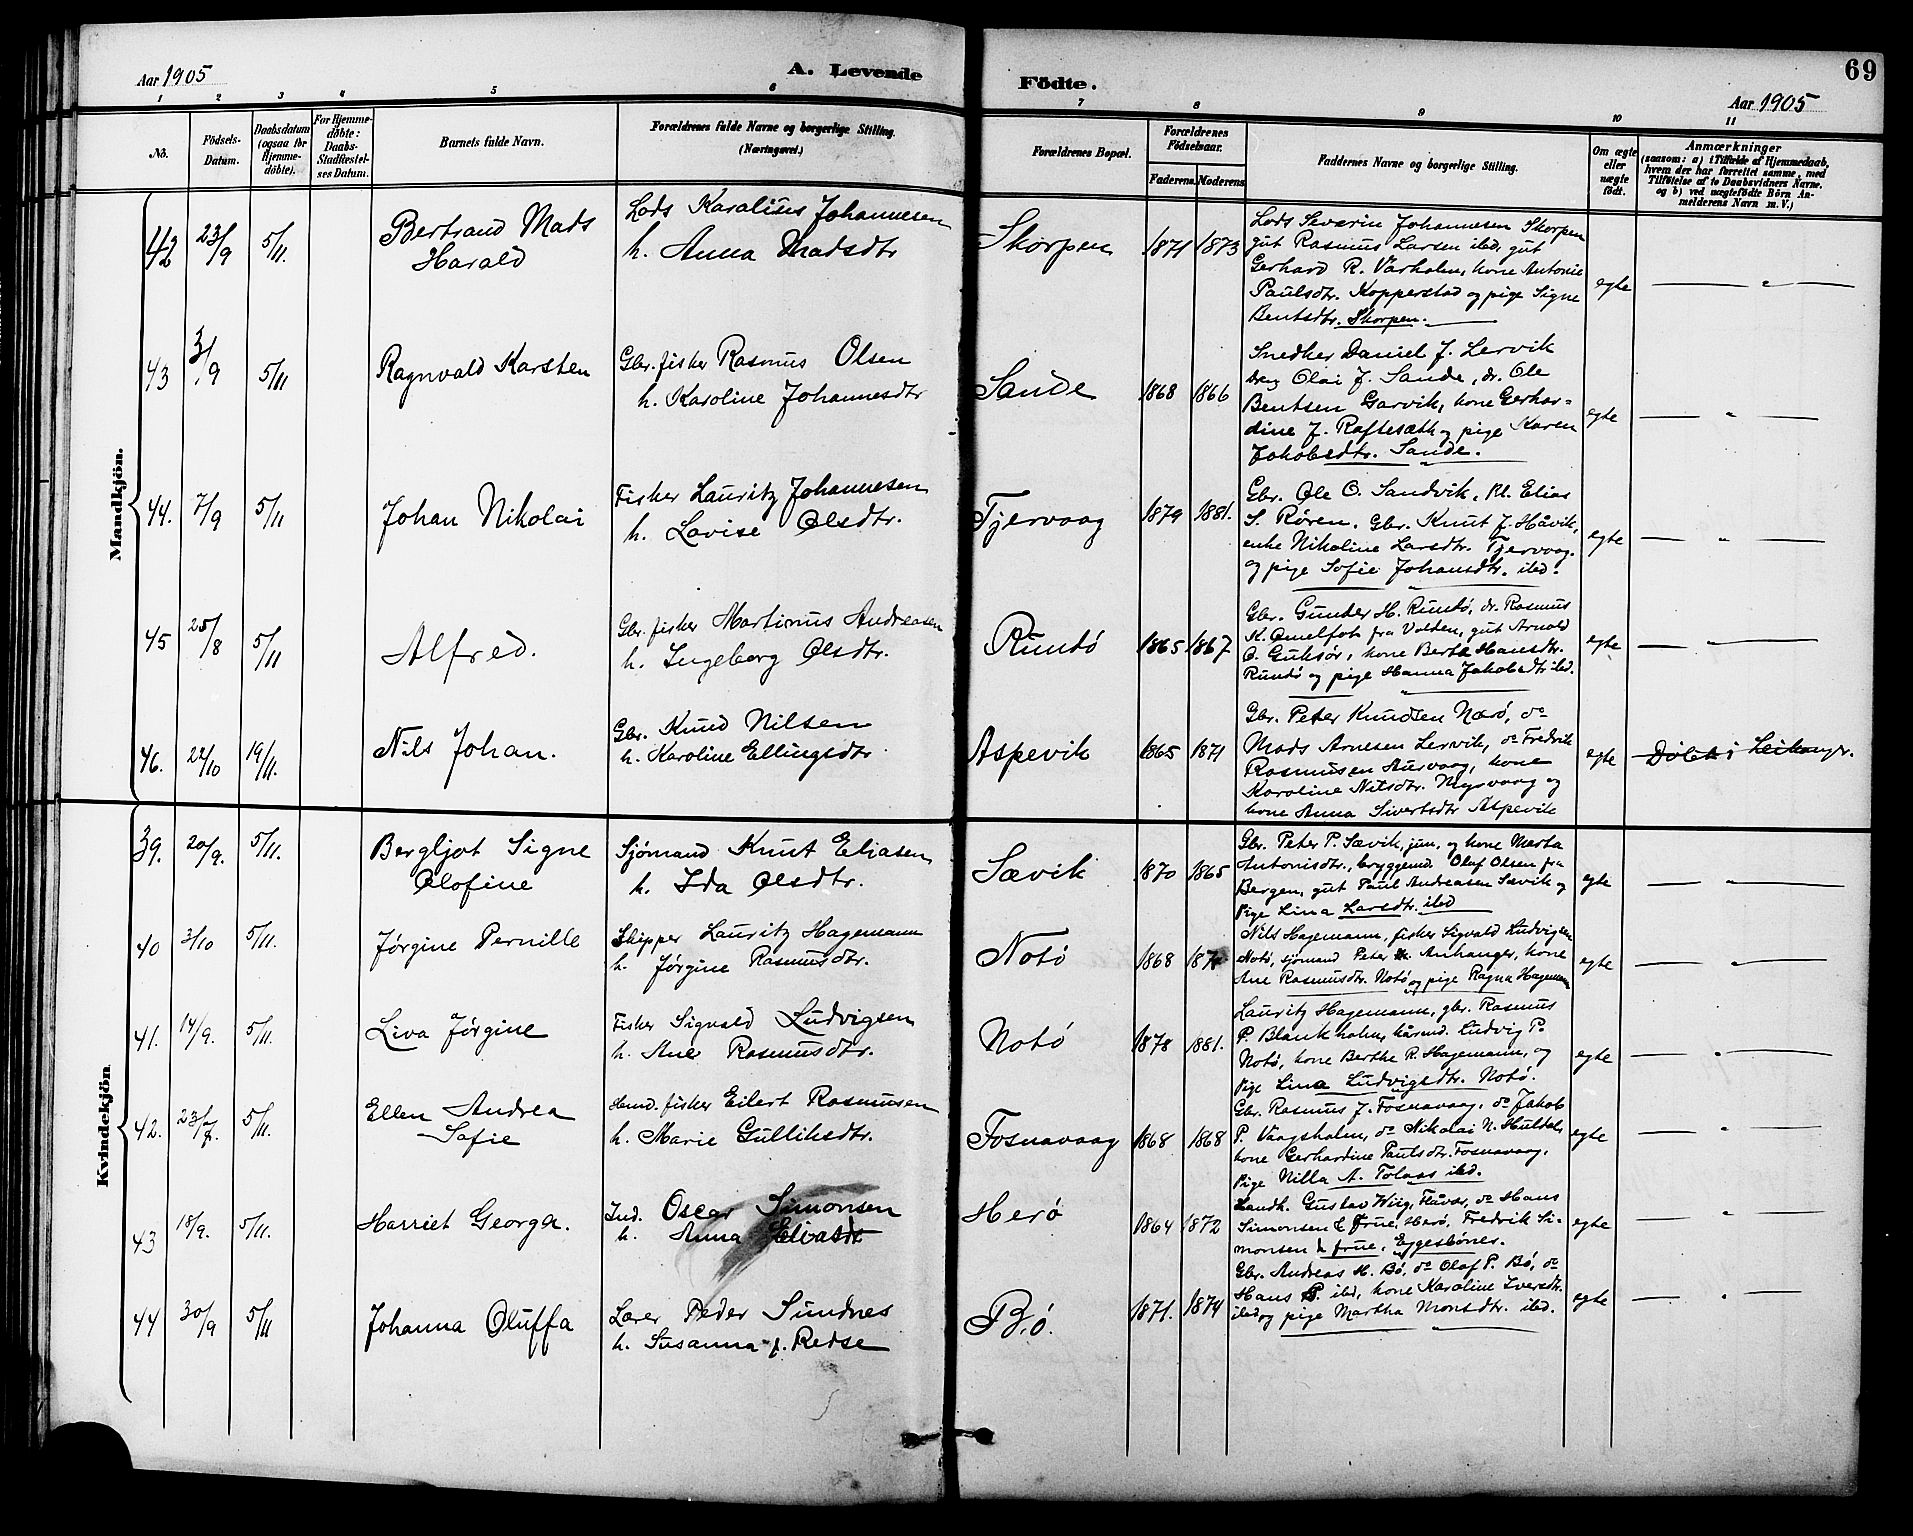 Aar 1905
A. Levende
Födte.
69
Aar 1905
1 2 3 4 5 6 7 8 9 10 11
No.
Födsels-
Datum.
Daabsdatum
(ogsaa for
Hjemme-
döbte).
For Hjemme-
döbte:
Daabs-
Stadfæstel-
ses Datum.
Barnets fulde Navn.
Forældrenes fulde Navne og borgerlige Stilling.
(Næringsvei.)
Forældrenes Bopæl.
Forældrenes
Födselsaar.
Faderens.
Moderens.
Faddernes Navne og borgerlige Stilling.
Om ægte
eller
uægte
födt.
Anmærkninger
(saasom: a) i Tilfælde af Hjemmedaab,
hvem der har forrettet samme, med
Tilföielse af to Daabsvidners Navne,
og b) ved uægtefödte Börn An-
melderens Navn m. V.)
Mandkjön.
42 23/9 5/11. Bertrand Mads
Harald
Lods Karolius Johannesen
h. Anna Madsdtr
Skorpen 1871 1873
Lods Severin Johannesen Skorpen
gut Rasmus Larsen ibd, gut
Gerhard R. Varholm, kone Antonie
Paulsdtr. Kopperstad og pige Signe
Bentsdtr. Skorpen.
egte — " —
43 3/9 5/11 Ragnvald Karsten
Gbr. fisker Rasmus Olsen
h. Karoline Johannesdtr
Sande 1868 1866
Snedker Daniel J. Lervik
Olai J. Sande, dr. Ole
Bentsen Garvik, kone Gerhar=
dine J. Raftesæth og pige Karen
Jakobsdtr. Sande.
egte — " —
44. 7/9 5/11 Johan Nikolai
Fisker Lauritz Johannesen
h. Lovise Olsdtr.
Tjervaag 1879 1881.
Gbr. Ole O. Sandvik, Kl. Elias
S. Røren, Gbr. Knut J. Håvik,
enke Nikoline Larsdtr. Tjervaag.
og pige Sofie Johansdtr. ibd.
egte — " —
45 25/8 5/11 Alfred.
Gbr. fisker Martinus Andreasen
h. Ingeborg Olsdtr.
Rundö 1865 1867
Gbr. Gunder H. Rundö, dr. Rasmus
K. fra Volden, gut Arnold
O. Guksør, kone Berthe Hansdtr.
Rundö og pige Hanna Jakobsdtr ibd.
egte — " —
46. 22/10 19/11. Nils Johan.
Gbr. Knud Nilsen
h. Karoline Ellingsdtr
Aspevik 1865 1871
Gbr. Peter Knudsen Nærö, do
Mads Arnesen Lervik, do Fredrik
Rasmussen Aurvaag, kone
Karoline Nilsdtr. Mysvaag og
kone Anna Sivertsdtr Aspevik
egte Döbt i Leikanger.
Kvindekjön
39. 20/9. 5/11. Bergljot Signe
Olofine
Sjömand Knut Eliasen
h. Ida Olsdtr.
Sævik 1870 1865
Gbr. Peter P. Sævik, jun, og kone Marta
Antonisdtr, bryggemd. Olaf Olsen fra
Bergen, gut Paul Andreasen Sævik og
Pige Lina Larsdtr. ibd
egte — " —
40 3/10 5/11. Jørgine Pernille
Skipper Lauritz Hagemann
h. Jørgine Rasmusdtr.
Notö 1868
Nils Hagemann, fisker Sigvald Ludvigsen
Notö, sjömand Peter Anhanger, kone
Ane Rasmusdtr. Notö og pige Ragna Hagemann
egte — " —
41. 14/9. 5/11. Liva Jørgine
Fisker Sigvald Ludvigsen
h. Ane Rasmusdtr.
Notö 1878 1881.
Lauritz Hagemann, gbr. Rasmus
P. Blankholm, kårmd. Ludvig P.
Notö, kone Berthe R. Hagemann, og
Pige Lina Ludvigsdtr. Notö.
egte — " —
42. 23/7. 5/11. Ellen Andrea
Sofie
fisker Eilert Rasmussen
h. Marie Gulliksdtr.
Fosnavaag 1868 1868
Gbr. Rasmus J. Fosnavaag, do Jakob
P. Vaagsholm, do Nikolai N. Huldal,
kone Gerhardine Paulsdtr. Fosnavaag,
Pige Nilla A. Tolaas ibd.
egte — " —
43 18/9. 5/11. Harriet Georga.
Ind. Oscar Simonsen
h. Anna
Herö 1864 1872
Landh. Gustav Wiig, Flåvær, do Hans
Simonsen & frue, Herö, Fredrik Si-
monsen & frue, Eggesbönes.
egte — " —
44 30/9 5/11 Johanna Oluffa
Lærer Peder Sundnes
h. Susanna f. Redse
Bö. 1871. 1874
Gbr. Andreas H. Bö, do Olaf P. Bö, do
Hans P ibd, kone Karoline Iversdtr.
ibd og pige Martha Monsdtr. ibd.
egte — " —